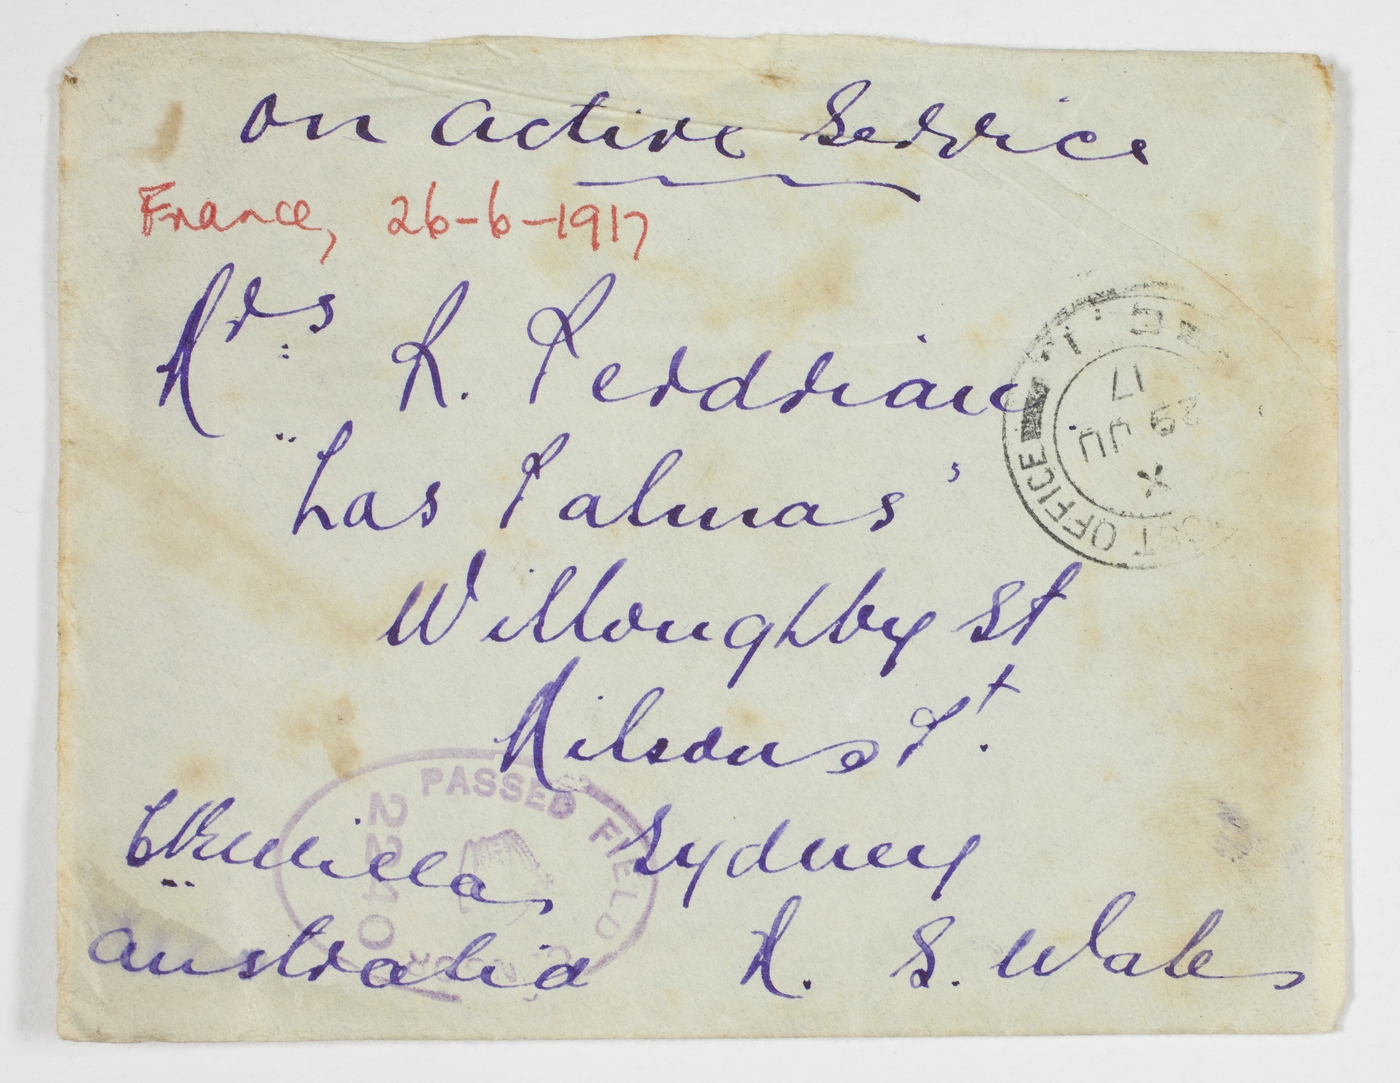 On Active Service
France, 26-6-1917
Mrs R. Perdriau
"Las Palmas"
Willoughby St
Milsons Pt.
Sydney
Australia N. S. Wales
POST OFFICE
29 JU
17
X
PASSED FIELD
2240